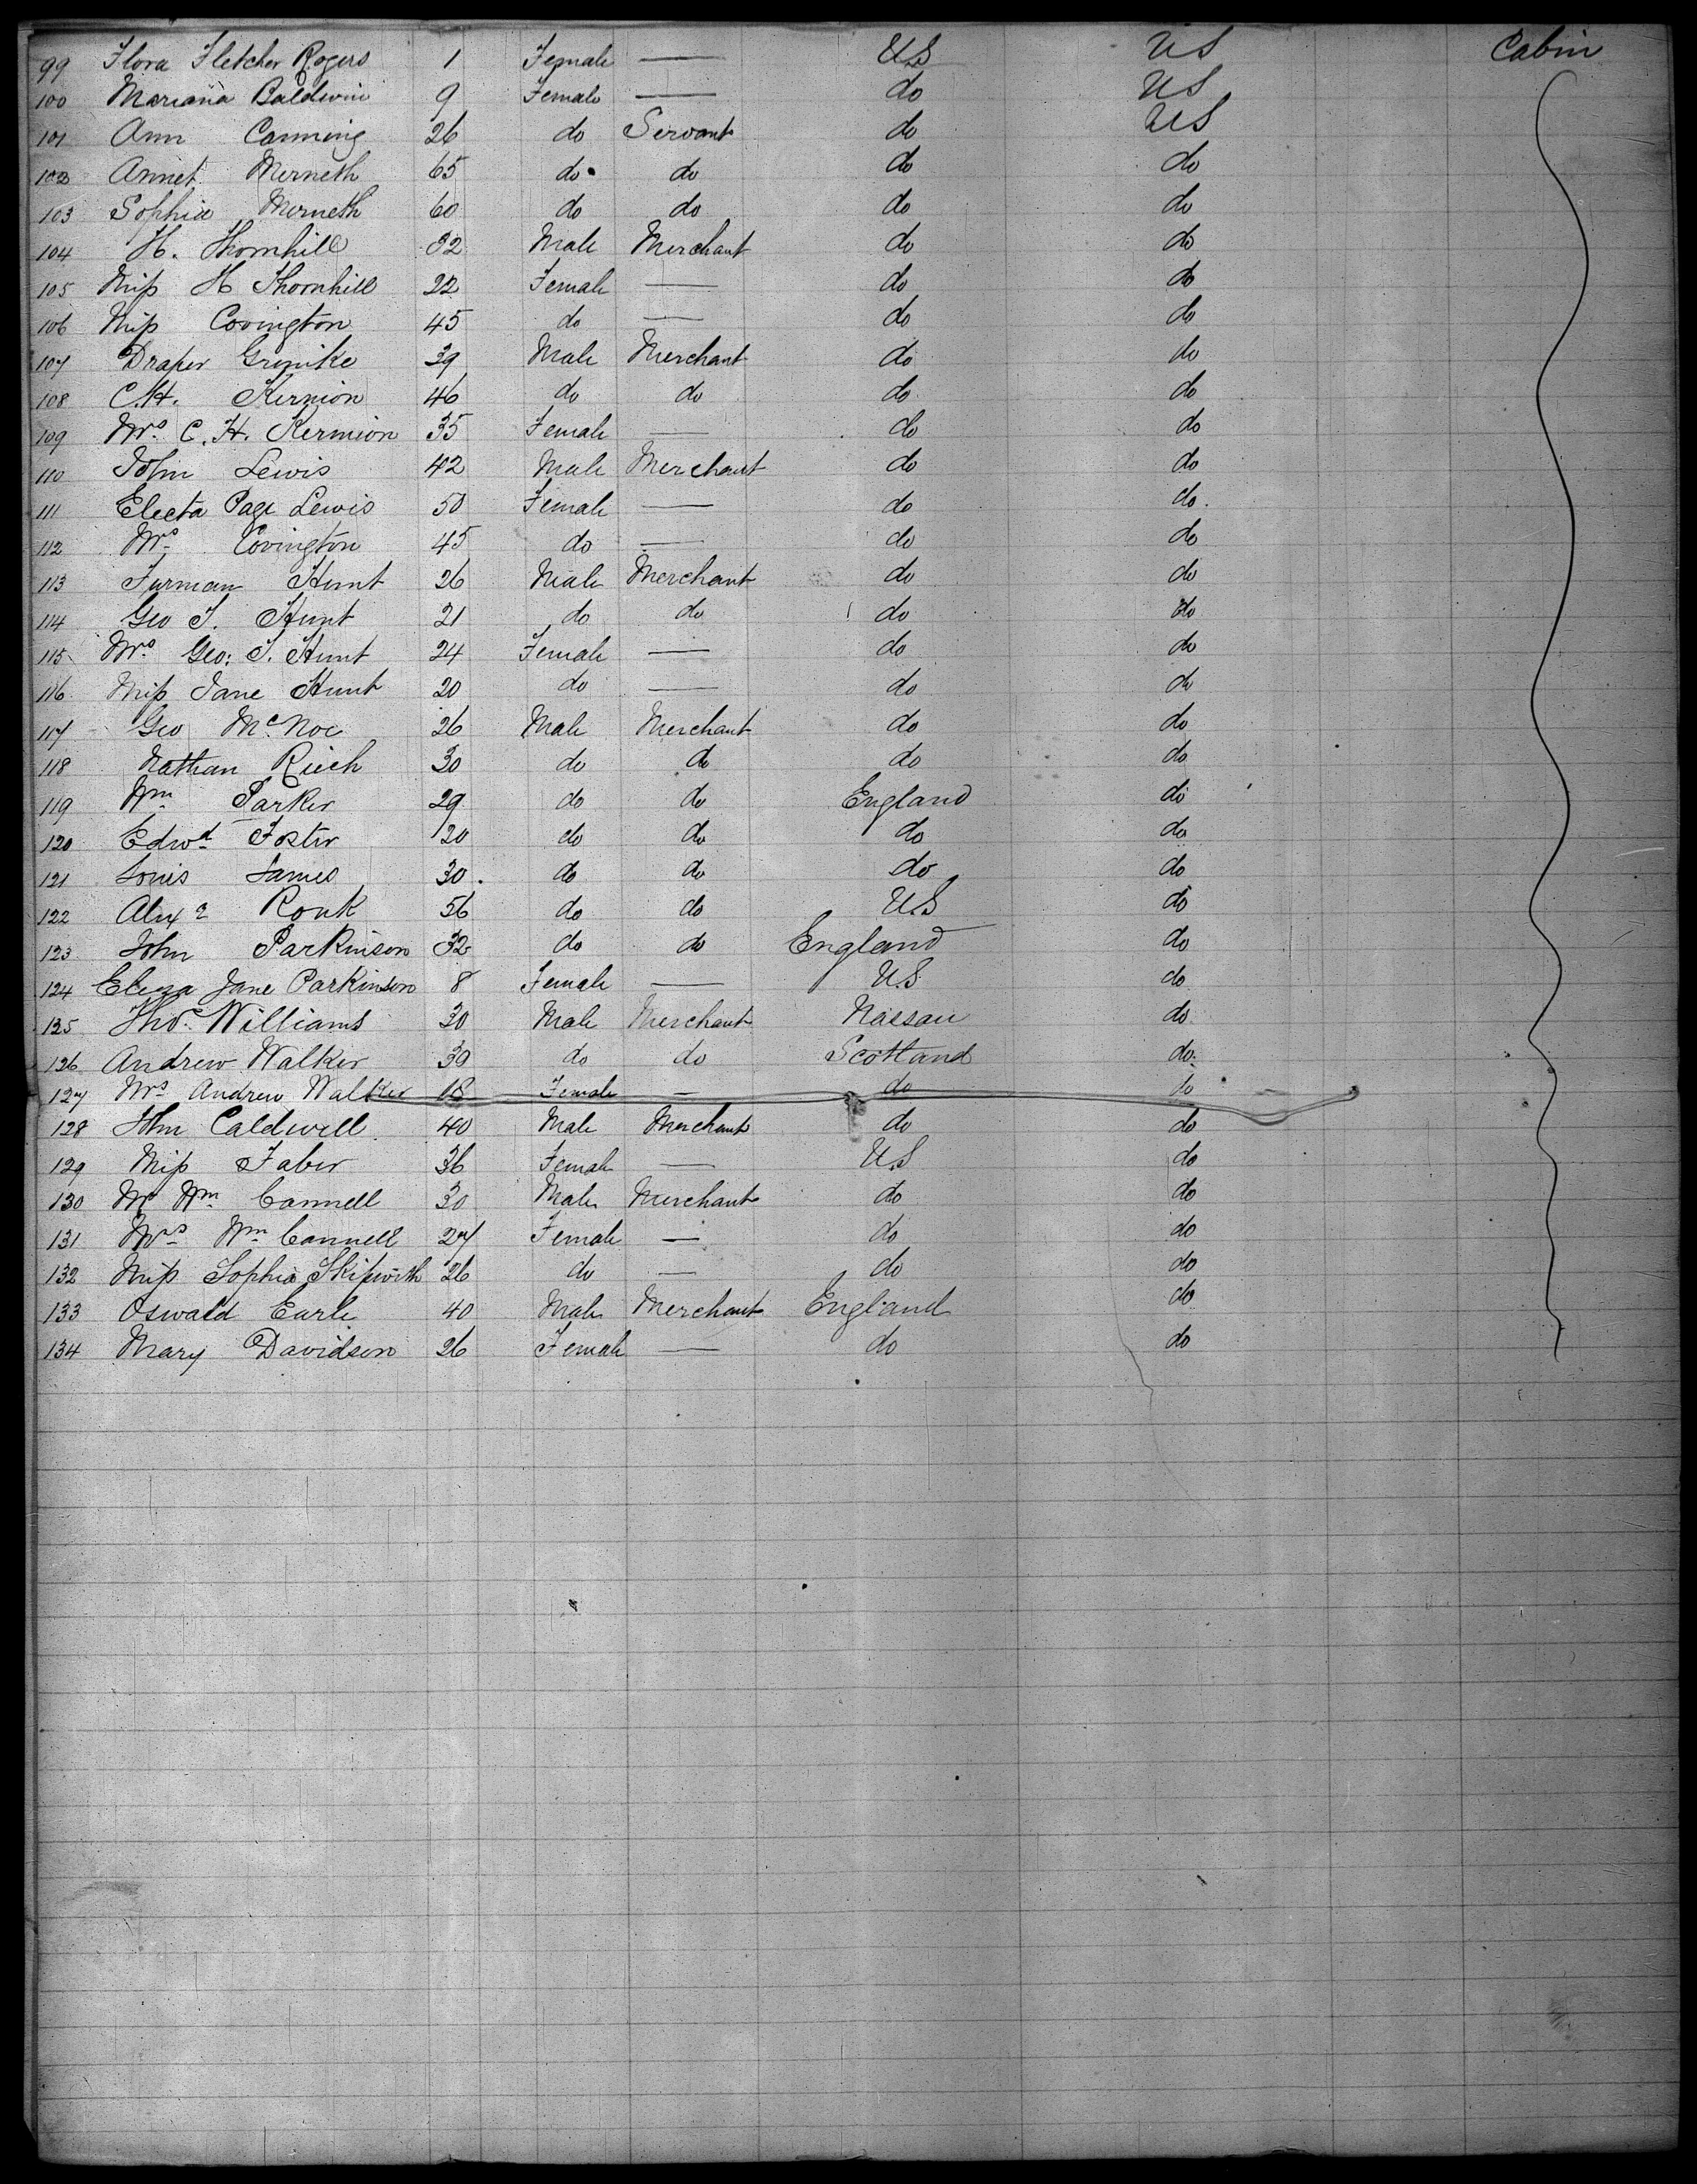 99 Flora Fletcher Rogers 1 Female — US US Cabin
100 Mariana Baldwin 9 Female — do US
101 Ann Canning 26 do Servant do US
102 Annet Merneth 65 do do do do
103 Sophia Merneth 60 do do do do
104 H. Thornhill 32 Male Merchant do do
105 Miss H Thornhill 22 Female — do do
106 Miss Covington 45 do — do do
107 Draper 39 Male Merchant do do
108 C.H. Kernion 46 do do do do
109 Mrs. C. H. Kermion 35 Female — do do
110 John Lewis 42 Male Merchant do do
111 Electa Page Lewis 50 Female — do do.
112 Mrs Covington 45 do — do do
113 Furman Hunt 26 Male Merchant do do
114 Geo T. Hunt 21 do do do do
115 Mrs Geo: T. Hunt 24 Female — do do
116 Miss Jane Hunt 20 do — do do
117 Geo McNoe 26 Male Merchant do do
118 Nathan Riech 30 do do do do
119 Wm Parker 29 do do England do
120 Edwd Foster 20 do do do do
121 Louis James 30. do do do do
122 Alexr Ronk 56 do do U.S do
123 John Parkinson 32 do do England do
124 Eliza Jane Parkinson 8 Female — U.S. do
125 Thos. Williams 30 Male Merchant Nassau do
126 Andrew Walker 39 do do Scotland do.
127 Mrs Andrew Walker 18 Female — do do
128 John Caldwell 40 Male Merchant do do
129 Miss Faber 36 Female — U.S do
130 Mr Wm Cannell 30 Male Merchant do do
131 Mrs Wm Cannell 27 Female — do do
132 Miss Sophia Skipwith 26 do — do do
133 Oswald Earle 40 Male Merchant England do
134 Mary Davidson 26 Female — do do